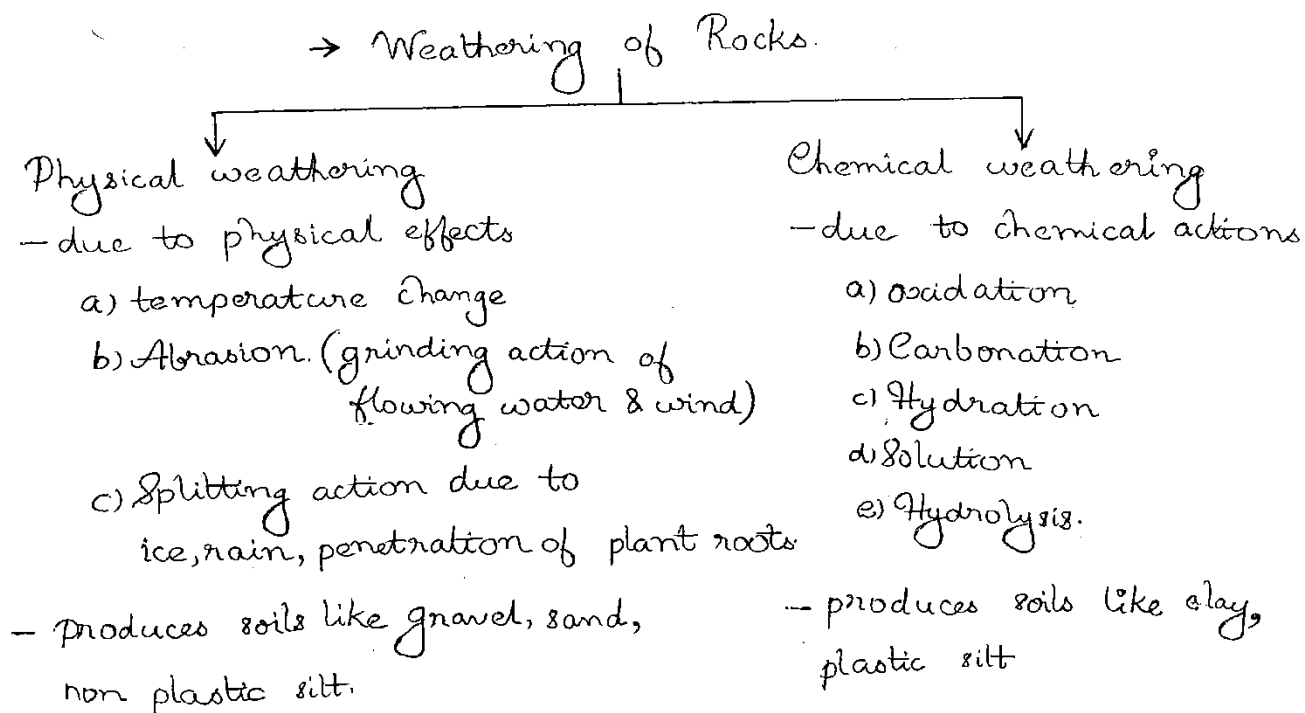 → Weathering of Rocks.
Physical weathering
- due to physical effects
a) temperature change
b) Abrasion. (grinding action of
flowing water & wind)
c) Splitting action due to
ice, rain, penetration of plant roots
- produces soils like gravel, sand,
non plastic silt.
Chemical weathering
- due to chemical actions
a) oxidation
b) Carbonation
c) Hydration
d) Solution
e) Hydrolysis.
- produces soils like clay,
plastic silt